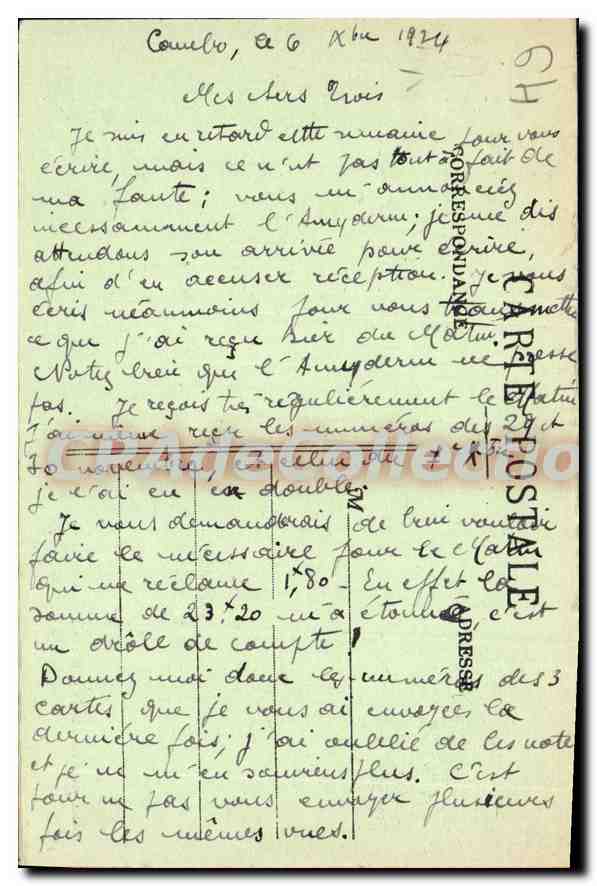 Cambo, le 6 Xbre 1934
49
Mes chers Trois
Je suis en retard cette semaine pour vous
écrire, mais ce n'est pas tout à fait de
ma faute ; vous m'annonciez
incessamment l'Amyderm ; je me dis
attendons son arrivée pour écrire,
afin d'en accuser réception. Je vous
écris néanmoins pour vous transmettre
ce que j'ai reçu hier du Matin
Notez bien que l'Amyderm ne presse
pas. Je reçois très régulièrement le Matin
J'ai même reçu les numéros des 29 et
30 novembre, et celui du 1 X
je l'ai eu en double.
Je vous demanderais de bien vouloir
faire le nécessaire pour le Matin
qui me réclame 1,80 - En effet la
somme de 23.20 m'a étonné, c'est
un drôle de compte !
Donnez moi donc les numéros des 3
cartes que je vous ai envoyées la
dernière fois ; j'ai oublié de les noter
et je ne m'en souviens plus. C'est
pour ne pas vous envoyer plusieurs
fois les mêmes vues.
CARTE POSTALE
CORRESPONDANCE
ADRESSE
M
CPADeCollection